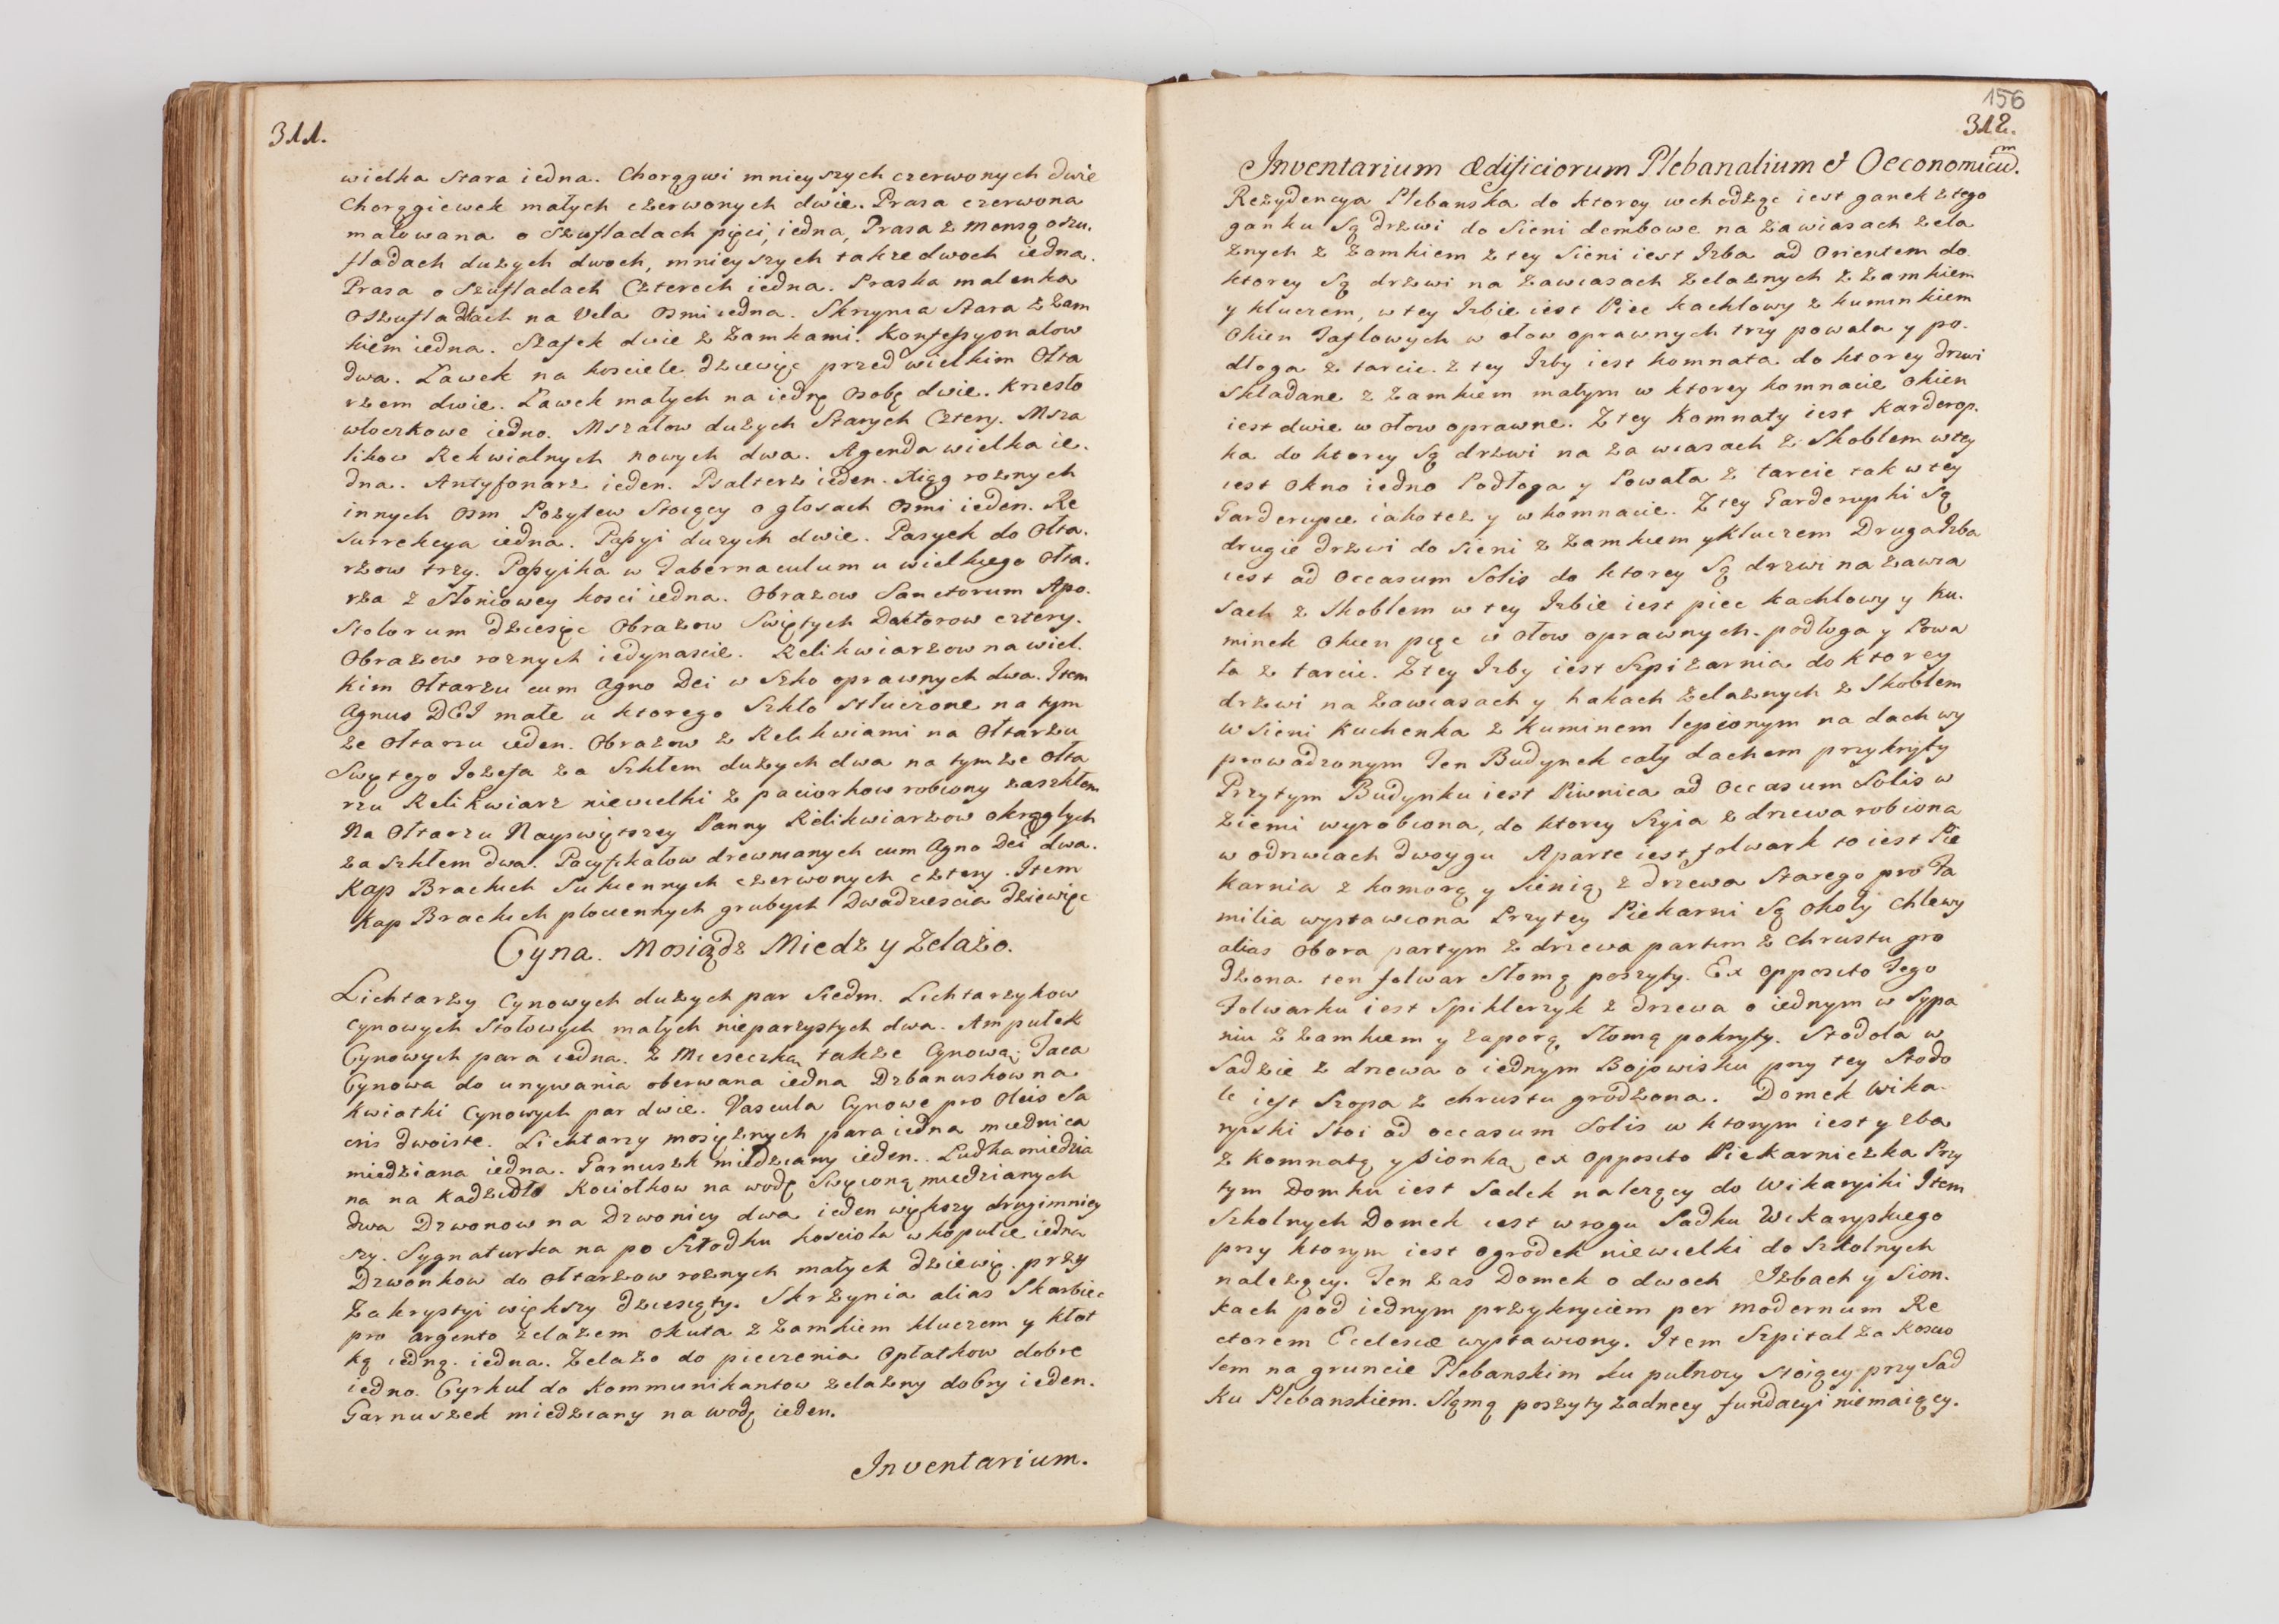 311.
wielka stara iedna. Chorągwi mnieyszych czerwonych dwie
Chorągiewek małych czerwonych dwie. Prasa czerwona
malowana o Szufladach pięci, iedna, Prasa z Monsą oszu.
fladach dużych dwoch, mnieyszych takze dwoch iedna.
Prasa o Szufladach Czterech iedna. Praska malenka
oszufladach na Vela osmi iedna. Skrzynia Stara z zam
kiem iedna. Szafek dwie z Zamkami. Konfessyonalow
dwa. Ławek na kosciele dziewięc przed wielkim Ołta
rzem dwie. Ławek małych na iednę osobę dwie. Krzesło
włoczkowe iedno. Mszałow dużych Starych Cztery. Msza
likow Rekwialnych nowych dwa. Agenda wielka ie.
dna. Antyfonarz ieden. Psalterz ieden. Xiąg roznych
innych osm Pozytew Stoiący o głosach osmi ieden. Re
surrekcya iedna. Passyi duzych dwie. Pasyek do Ołta.
rzow trzy. Passyika w Tabernaculum u wielkiego Ołta.
rza z Słoniowey kosci iedna. Obrazow Sanctorum Apo.
stolorum dziesięc Obrazow Swiętych Doktorow cztery.
Obrazow roznych iedynascie. Relikwiarzow na wiel.
kim Ołtarzu cum Agno Dei w Szko oprawnych dwa. Item
Agnus DEI małe u ktorego Szkło stłuczone na tym
ze Ołtarzu ieden. Obrazow z Relikwiami na Ołtarzu
Swiętego Jozefa za Szkłem dużych dwa na tymze Ołta
rzu Relikwiarz niewielki z paciorkow robiony zaszkłem
Na Ołtarzu Nayswiętszey Panny Relikwiarzow okrągłych
za szkłem dwa. Pacyfikałow drewnianych cum Agno Dei dwa.
Kap Brackich Sukiennych czerwonych cztery. Item
Kap Brackich płociennych grubych Dwadziescia dziewięc
Cyna. Mosiądz Miedz y Zelazo.
Lichtarzy Cynowych dużych par Siedm. Lichtarzykow
cynowych Stołowych małych nieparzystych dwa. Ampułek
Cynowych para iedna. z Miseczką takze Cynową; Taca
Cynowa do umywania oberwana iedna Dzbanuszkow na
kwiatki Cynowych par dwie. Vascula Cynowe pro Oleis Sa
cris dwoiste. Lichtarzy mosiężnych para iedna miednica
miedziana iedna. Garnuszk miedziany ieden. Ludka miedzia
na na kadzidło Kociołkow na wodę Swięconą miedzianych
dwa Dzwonow na Dzwonicy dwa ieden większy drugi mniey
szy. Sygnaturka na po Szrodku kosciola w kopułce iedna
Dzwonkow do Ołtarzow roznych małych dziewię. przy
Zakrystyi większy dziesięty. Skrzynia alias Skarbiec
pro argento żelazem okuta z Zamkiem kluczem y kłot
ką iedną. iedna. Żelazo do pieczenia Opłatkow dobre
iedno. Cyrkuł do Kommunikantow żelazny dobry ieden.
Garnuszek miedziany na wodę ieden.
Inventarium.
156
312.
Inventarium Ædificiorum Plebanalium et Oeconomicum.
Rezydencya Plebanska do ktorey wchodząc iest ganek z tego
ganku Są drzwi do Sieni dembowe na Zawiasach zela
znych z Zamkiem z tey Sieni iest Izba ad Orientem do
ktorey Są drzwi na Zawiasach Zelaznych z Zamkiem
y kluczem, w tey Izbie iest Piec kachlowy z kuminkiem
Okien Taflowych w ołow oprawnych trzy powała y po.
dłoga z tarcic. z tey Izby iest komnata do ktorey drzwi
składane z Zamkiem małym w ktorey komnacie Okien
iest dwie w ołow oprawne. Z tey Komnaty iest Karderop.
ka do ktorey Są drzwi na zawiasach z Skoblem w tey
iest Okno iedno Podłoga y Powała z tarcic tak w tey
Garderupce iako tez y w komnacie. Z tey Garderupki Są
drugie drzwi do Sieni z Zamkiem y Kluczem Druga Izba
iest ad Occasum Solis do ktorey Są drzwi na zawia
sach z Skoblem w tey Izbie iest piec kachlowy y ku.
minek Okien pięc w Ołow oprawnych. podłoga y Powa
ła z tarcic. Z tey Izby iest Szpizarnia do ktorey
drzwi na Zawiasach y hakach Zelaznych z Skoblem
w Sieni Kuchenka z Kuminem lepionym na dach wy
prowadzonym Ten Budynek cały dachem przykryty
Przytym Budynku iest Piwnica ad Occasum Solis w
Ziemi wyrobiona, do ktorey Szyia z drzewa robiona
w odrzwiach dwoygu Aparte iest folwark to iest Pie
karnia z komorą y Sienią z drzewa Starego pro Fa
milia wystawiona Przytey Piekarni Są okoły Chlewy
alias Obora partym z drzewa partim z Chrustu gro
dzona ten folwar Słomą poszyty. Ex opposito Tego
Folwarku iest Spiklerzyk z drzewa o iednym w Sypa
niu z Zamkiem y zaporą Słomą pokryty. Stodola w
Sadzie z drzewa o iednym Bojowisku przy tey Stodo
le iest Szopa z chrustu grodzona. Domek Wika.
ryiski Stoi ad occasum Solis w ktorym iest yzba
z Komnatą y Sionką ex opposito Piekarniczka Przy
tym Domku iest Sadek nalezący do Wikaryiki Item
Szkolnych Domek iest w rogu Sadku Wikaryskiego
przy ktorym iest ogrodek niewielki do Szkolnych
nalezący. Ten zas Domek o dwoch Izbach y Sion.
kach pod iednym przykryciem per modernum Re
ctorem Ecclesiæ wystawiony. Item Szpital za Koscio
łem na gruncie Plebanskim ku pułnocy stoiący przy Sad
ku Plebanskiem. Słomą poszyty Zadney fundacyi niemaiący.